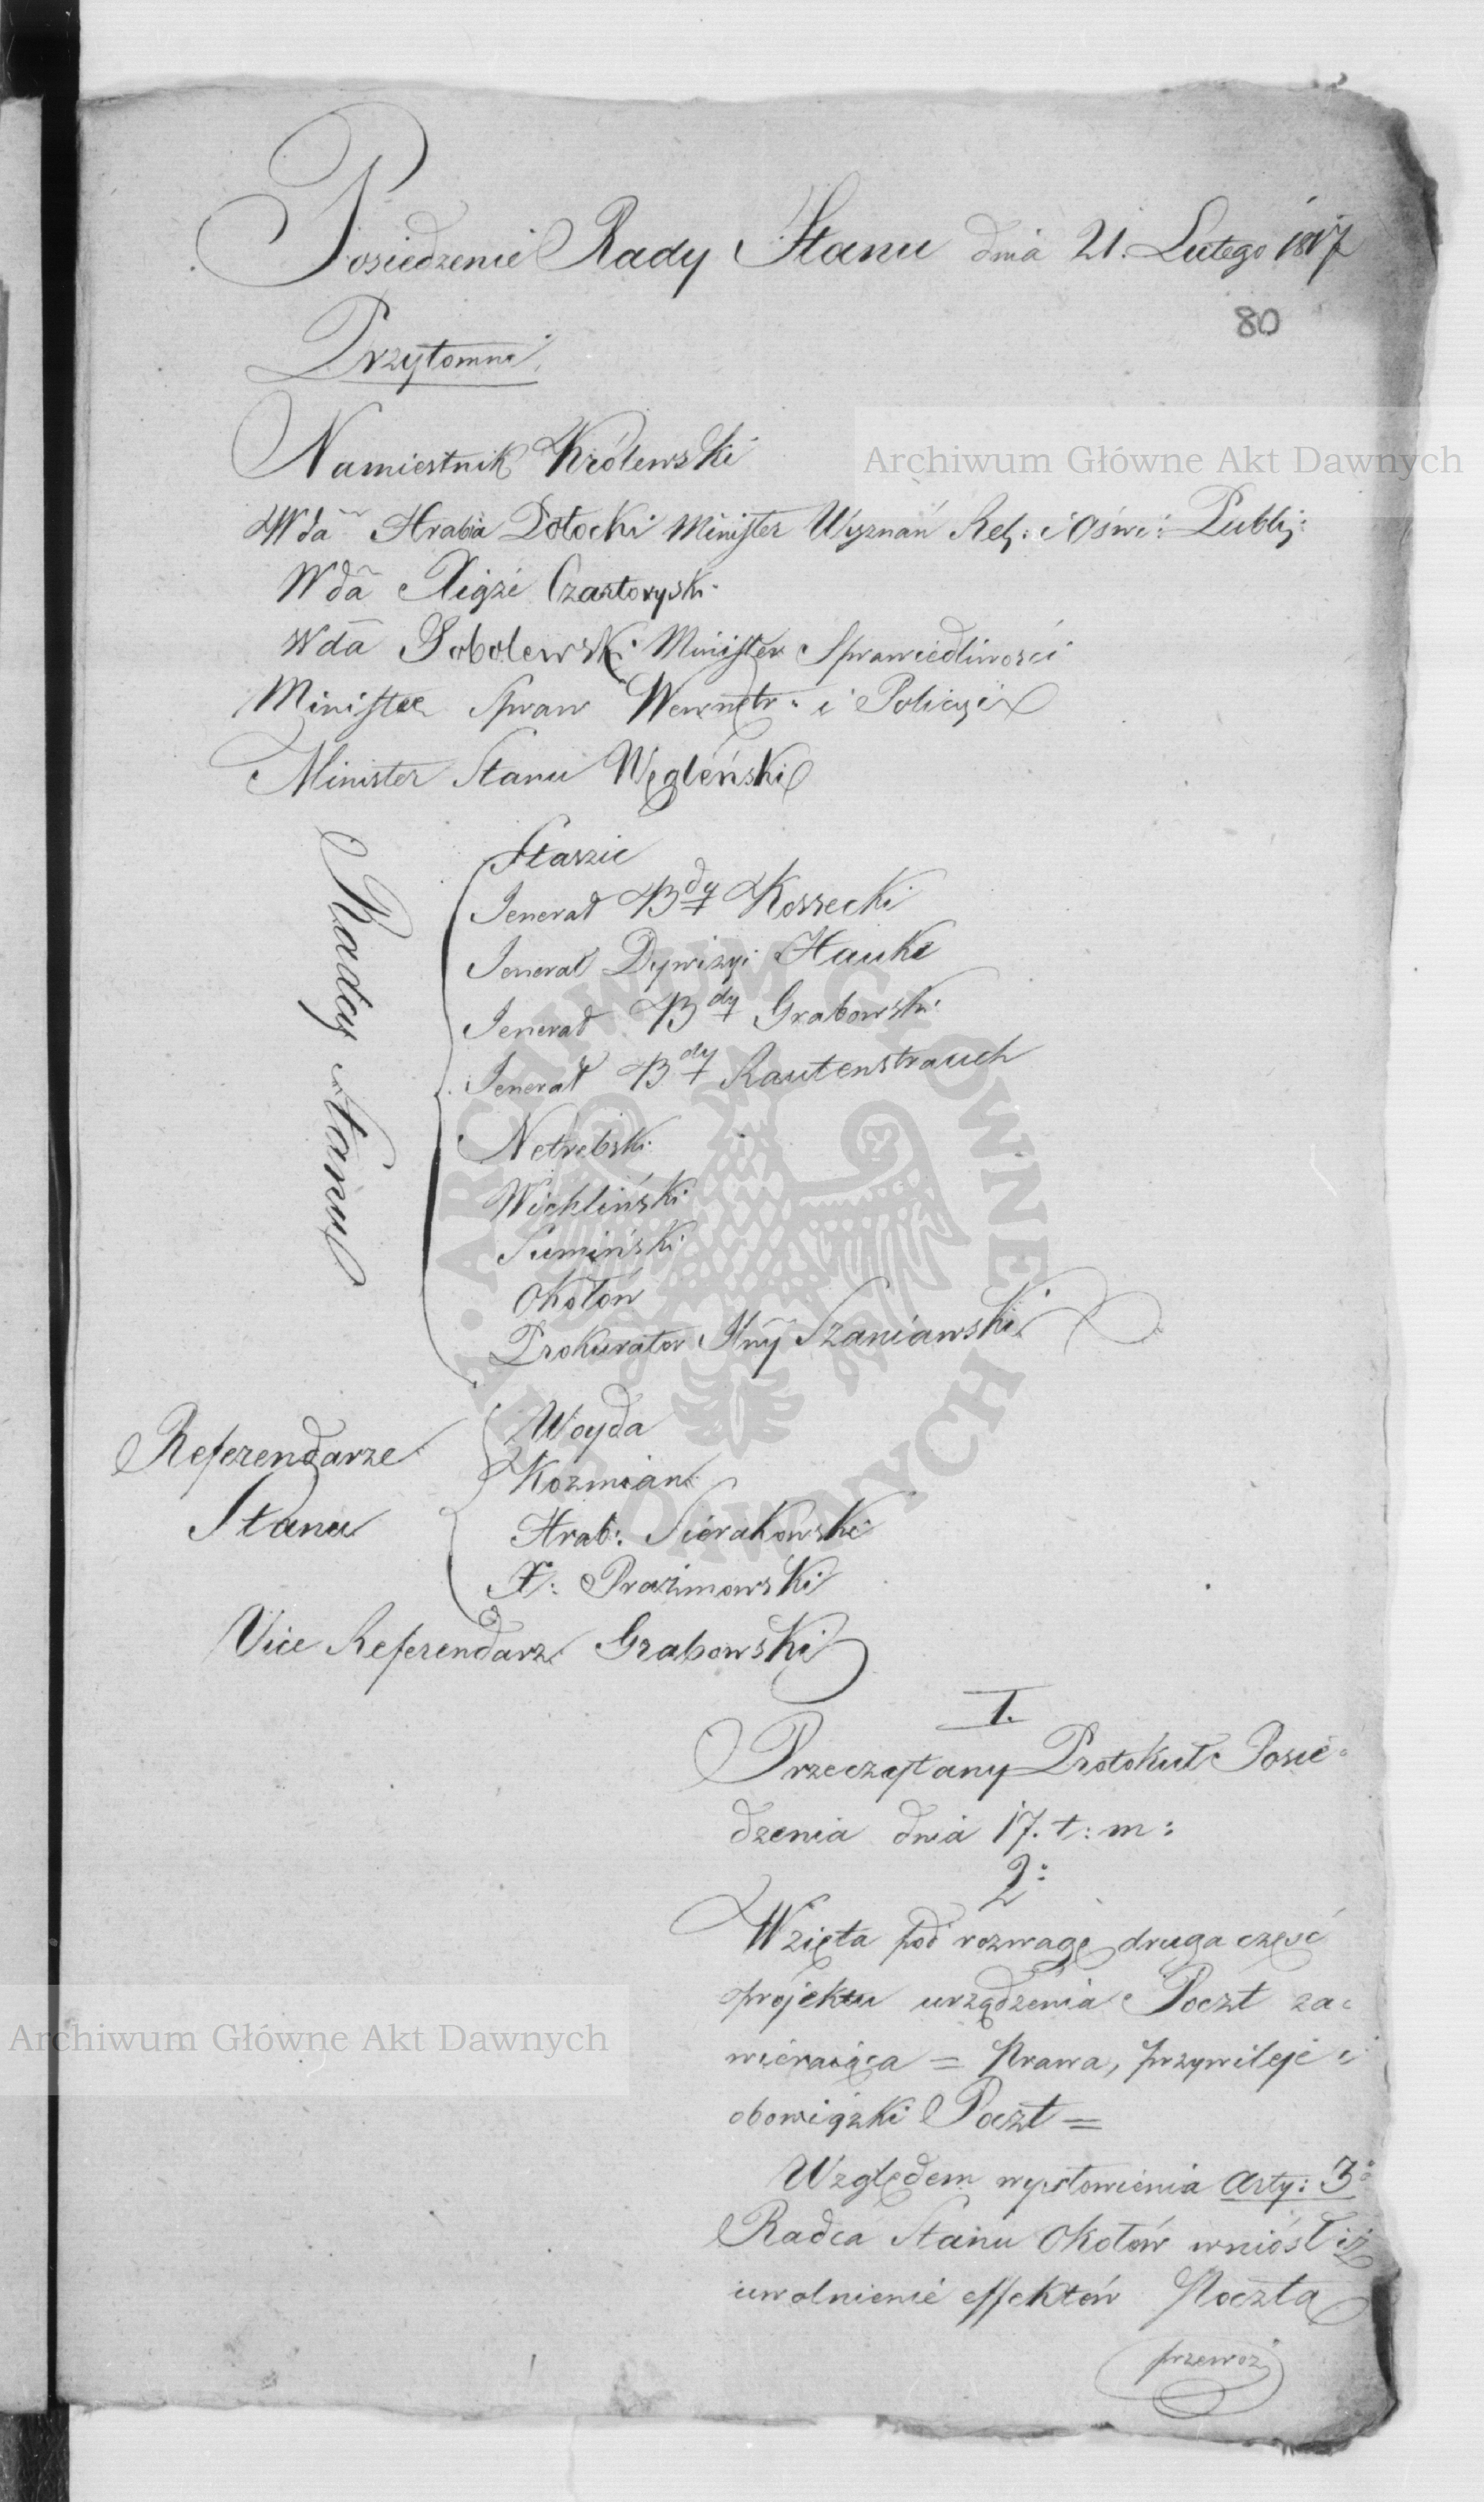 Posiedzenie Rady Stanu dnia 21. Lutego 1817
80
Przytomni
Namiestnik Królewski
Wda Hrabia Potocki Minister Wyznań Rel: i Oświ: Publi:
Wda Xiąże Czartoryski
Wda Sobolewski Minister Sprawiedliwości
Minister Spraw Wewnętr: i Policyi
Minister Stanu Węgleński
Radcy Stanu
Staszic
Jenerał Bdy Kossecki
Jenerał Dywizyi Hauke
Jenerał Bdy Grabowski
Jenerał Bdy Rautenstrauch
Netrebski
Wichliński
Sumiński
Okołów
Prokurator Jlny Szaniawski
Referendarze
Stanu
Woyda
Kozmian
Hrab: Sierakowski
X: Prażmowski
Vice Referendarz Grabowski
1.
Przeczytany Protokuł Posie-
dzenia dnia 17. t: m:
2:
Wzięta pod rozwagę druga część
projektu urządzenia Poczt za-
wieraiąca = Prawa, przywileje i
obowiązki Poczt =
Względem wysłowienia Arty: 3o
Radca Stanu Okołów wniósł iż
uwolnienie effektów Pocztą
przewoż
Archiwum Główne Akt Dawnych
Archiwum Główne Akt Dawnych
ARCHIWUM GŁÓWNE AKT DAWNYCH